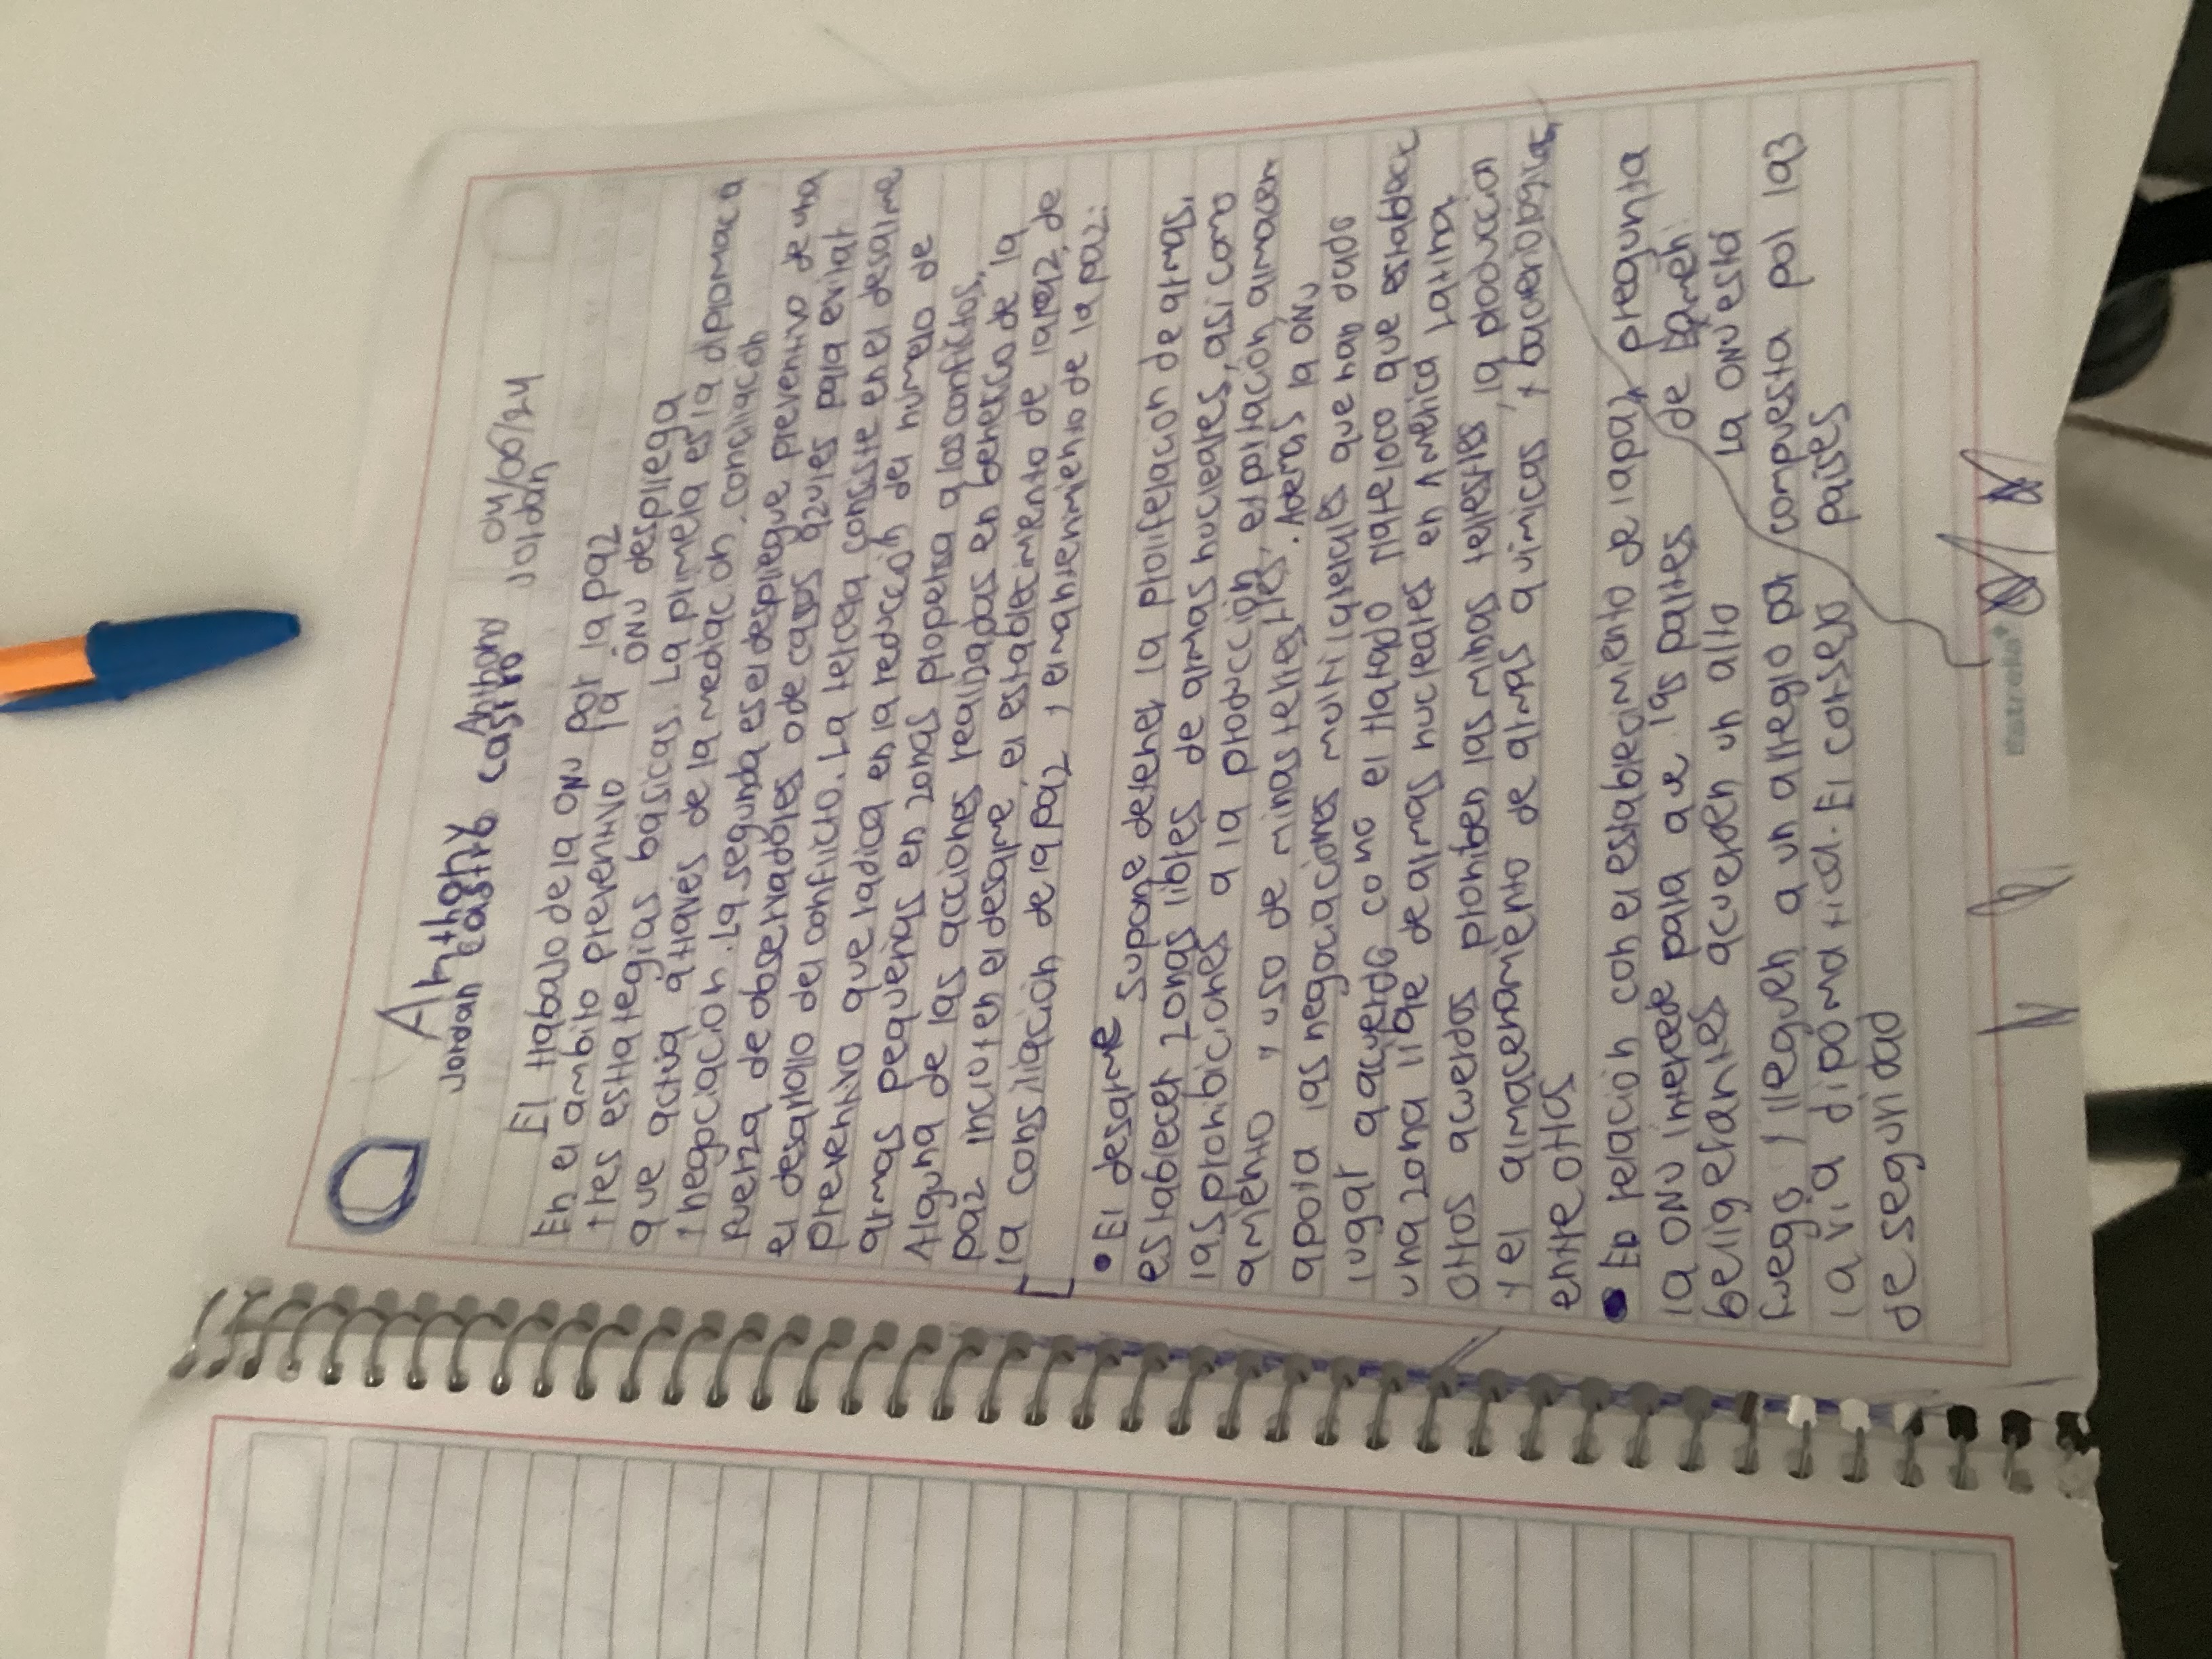 Anthony Anthony 04/06/24
Jordan castro castro Joldan
El trabajo de la ONU por la paz
En el ambito preventivo la ONU despliega
tres estrategias basicas. La primera es la diplomaca
que actúa através de la mediación, conciliación
y negociacion. La segunda es el despliegue preventivo de una
fuerza de observadores o de casos azules para evitar
el desarrollo del conflicto. La tercea consiste en el desarme
preventivo que radica en la reducción del numelo de
armas pequeñas en zonas propensa a los conflictos,
Alguna de las acciones realibadas en beneficio de la
paz incluten el desarme, el establecimiento de la paz, de
la consiliación de la paz y el mantenimiento de la paz:
• El desarme supone detener la proliferación de armas,
establecer zonas libres de armas nucleares, asi como
las prohibiciones a la producción, exportación almacen
amiento y uso de minas terrestres. Ademas la ONU
apota las negociaciones multilaterales que han dado
lugar a acuerdo como el tratado tlateloco que establece
una zona libre de armas nucleares en America Latina.
Otros acuerdos prohiben las minas terrestres, la produccion
y el almacenamiento de armas quimicas, y bacteriologica,
entre otras
• En relacion con el establecimiento de la paz, pregunta
la ONU intercede para que las partes de bameh
beligerantes acuerden un alto La ONU está
fuego y lleguen a un arreglo por compuesta pol la3
la via dipomatica. El consejo paises
de seguridad
Estrella